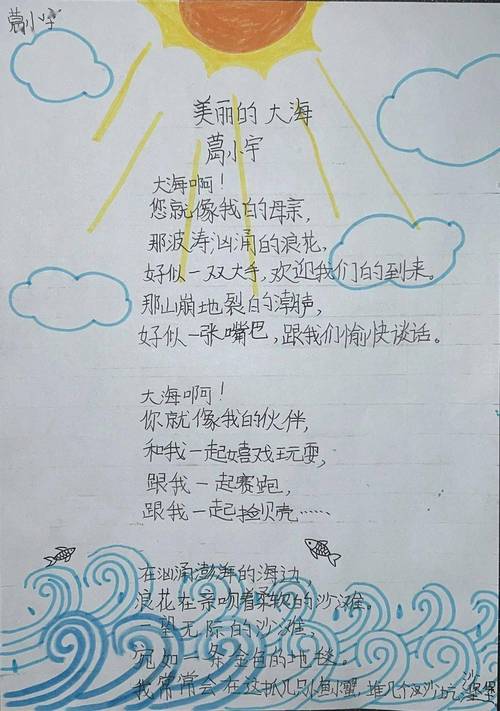 葛小宇
美丽的大海
葛小宇
大海啊！
您就像我的母亲，
那波涛汹涌的浪花，
好似一双大手，欢迎我们的到来。
那山崩地裂的潮声，
好似一张嘴巴，跟我们愉快谈话。
大海啊！
你就像我的伙伴，
和我一起嬉戏玩耍，
跟我一起赛跑，
跟我一起捡贝壳……
在汹涌澎湃的海边，
浪花在亲吻着柔软的沙滩。
一望无际的沙滩，
宛如一条金色的地毯。
我常常会在这抓几只小鱼小蟹，堆几个沙